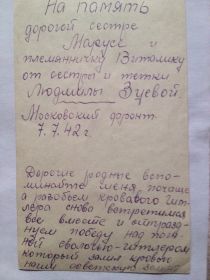 На память
дорогой сестре
Марусе и
племяннику Виталику
от сестры и тетки
Людмилы Зуевой.
Московский фронт
7.7.42г.
Дорогие родные вспо-
минайте меня почаще
а разобьем кровавого гит-
лера снова встретимся
все вместе и отпразд-
нуем победу над
сволочью-гитлером
который залил кровью
нашу советскую